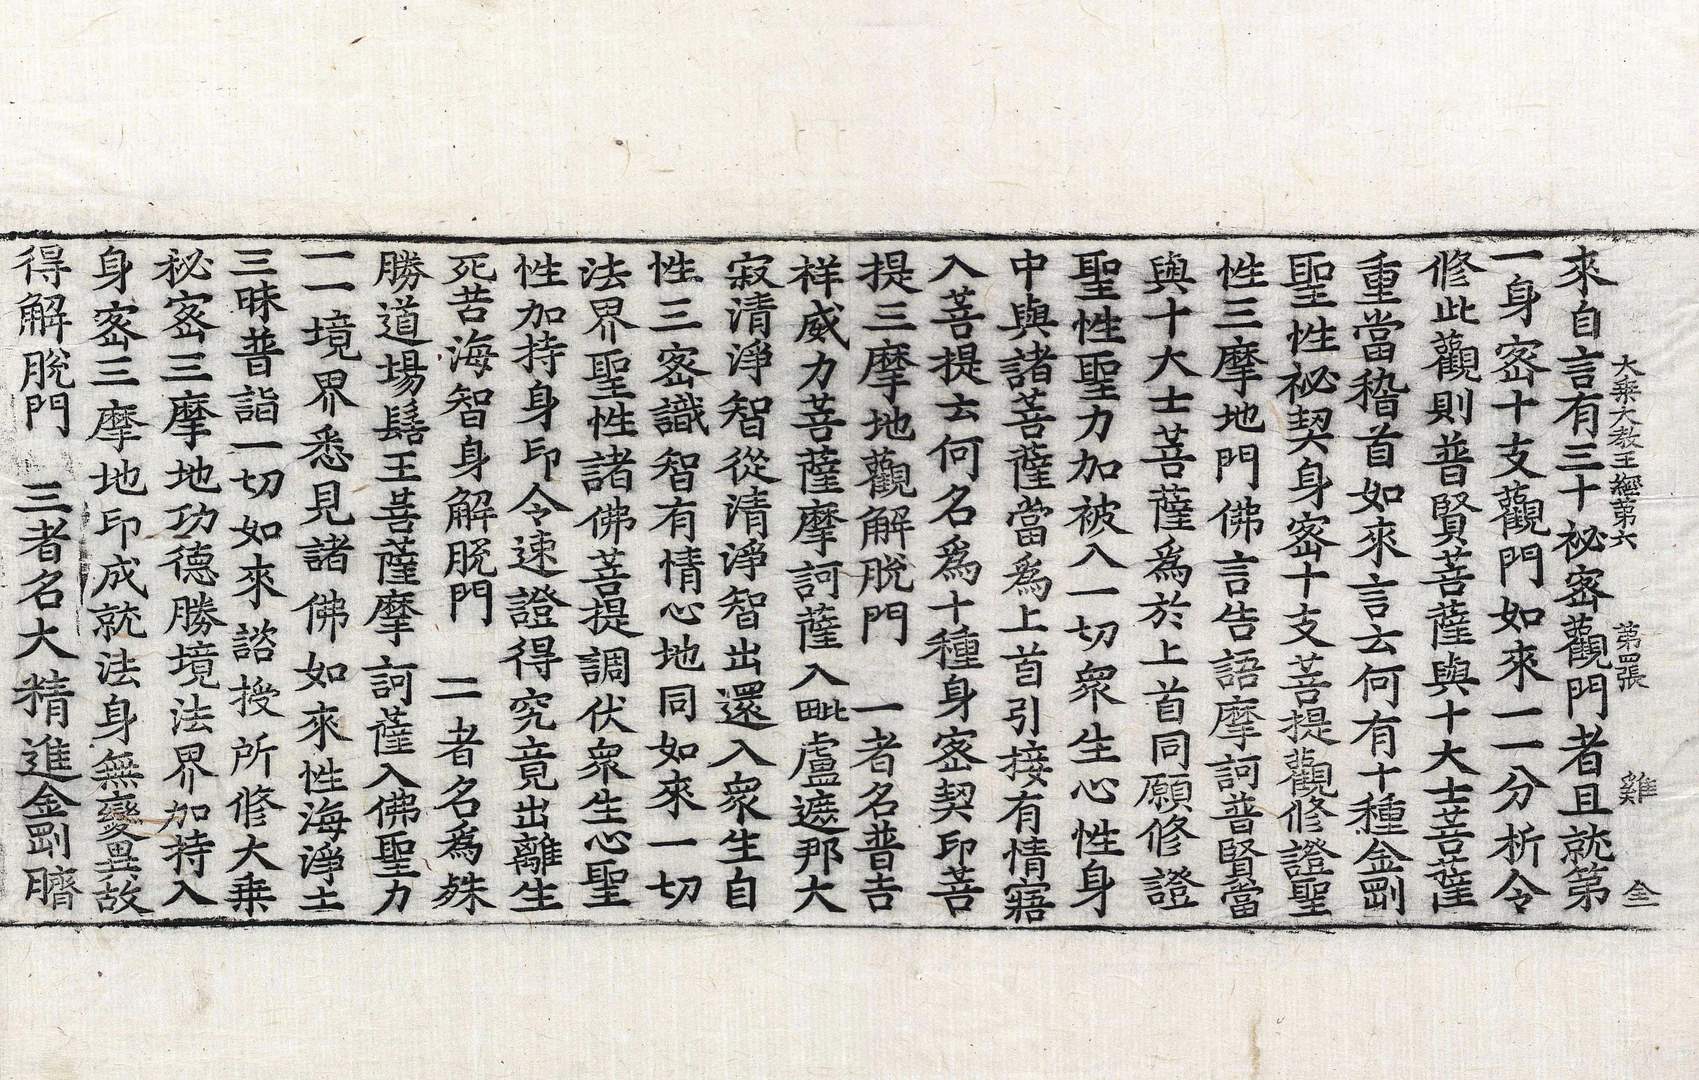 大乘大教王經第六 第四張 雞 全
來自言有三十祕密觀門者且就第
一身密十支觀門如來一一分析令
修此觀則普賢菩薩與十大士菩薩
重當稽首如來言云何有十種金剛
聖性祕契身密十支菩提觀修證聖
性三摩地門佛言告語摩訶普賢當
與十大士菩薩爲於上首同願修證
聖性聖力加被入一切衆生心性身
中與諸菩薩當爲上首引接有情寤
入菩提云何名爲十種身密契印菩
提三摩地觀解脫門 一者名普吉
祥威力菩薩摩訶薩入毗盧遮那大
寂清淨智從清淨智出還入衆生自
性三密識智有情心地同如來一切
法界聖性諸佛菩提調伏衆生心聖
性加持身印令速證得究竟出離生
死苦海智身解脫門 二者名爲殊
勝道場髻王菩薩摩訶薩入佛聖力
一一境界悉見諸佛如來性海淨土
三昧普詣一切如來諮授所修大乘
秘密三摩地功德勝境法界加持入
身密三摩地印成就法身無變異故
得解脫門 三者名大精進金剛臍